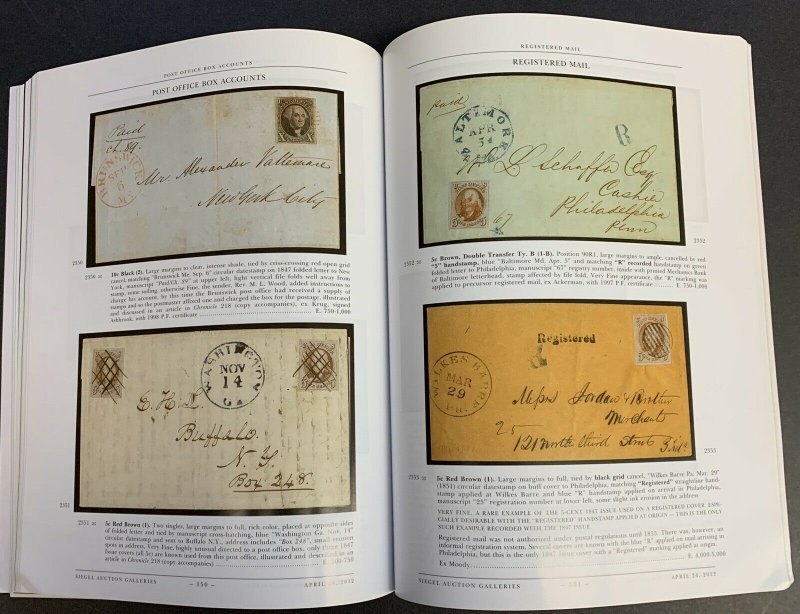 POST OFFICE BOX ACCOUNTS
POST OFFICE BOX ACCOUNTS
Paid
Ch. 89.
BRUNSWICK
SEP
6
Mr. Alexander Vattemare
New York City
2350
2350
10c Black (2). Large margins to clear, intense shade, tied by criss-crossing red open grid
and matching "Brunswick Me. Sep. 6" circular datestamp on 1847 folded letter to New
York, manuscript "Paid/Ch. 89" at upper left; light vertical file folds well away from
stamp, some toning, otherwise Fine, the sender, Rev. M. L. Wood, added instructions to
charge his account, by this time the Brunswick post office had received a supply of
stamps and so the postmaster affixed one and charged the box for the postage, illustrated
and discussed in an article in Chronicle 218 (copy accompanies), ex Krug, signed
Ashbrook, with 1998 P.F. certificate E. 750-1,000
WASHINGTON
NOV
14
GA
Buffalo
N. Y.
Box 248.
2351
2351
5c Red Brown (1). Two singles, large margins to full, rich color, placed at opposite sides
of folded letter and tied by manuscript cross-hatching, blue "Washington Ga. Nov. 14"
circular datestamp and sent to Buffalo N.Y., address includes "Box 248", small erosion
spots in address, Very Fine, highly unusual directed to a post office box, only three 1847
Issue covers (all 5c) are known used from this post office, illustrated and described in an
article in Chronicle 218 (copy accompanies) E. 500-750
SIEGEL AUCTION GALLERIES
– 350 –
APRIL 28, 2012
REGISTERED MAIL
REGISTERED MAIL
paid
BALTIMORE
APR
R
Schaffer Esq
Cashier
Philadelphia
Penn
67
2352
2352
5c Brown, Double Transfer Ty. B (1-B). Position 90R1, large margins to ample, cancelled by red
"5" handstamp, blue "Baltimore Md. Apr. 5" and matching "R" recorded handstamp on green
folded letter to Philadelphia, manuscript "67" registry number, inside with printed Mechanics Bank
of Baltimore letterhead, stamp affected by file fold, Very Fine appearance, the "R" marking was
applied to precursor registered mail, ex Ackerman, with 1997 P.F. certificate E. 750-1,000
Registered
WILKES BARRE
MAR
29
Messrs Jordan & Brother
Merchants
25
121 North Third Street
2353
2353
5c Red Brown (1). Large margins to full, tied by black grid cancel, "Wilkes Barre Pa. Mar. 29"
(1851) circular datestamp on buff cover to Philadelphia, matching "Registered" straightline hand-
stamp applied at Wilkes Barre and blue "R" handstamp applied on arrival in Philadelphia,
manuscript "25" registration number at lower left, some slight ink erosion in the address
VERY FINE. A RARE EXAMPLE OF THE 5-CENT 1847 ISSUE USED ON A REGISTERED COVER. ESPE-
CIALLY DESIRABLE WITH THE "REGISTERED" HANDSTAMP APPLIED AT ORIGIN — THIS IS THE ONLY
SUCH EXAMPLE RECORDED WITH THE 1847 ISSUE.
Registered mail was not authorized under postal regulations until 1855. There was, however, an
informal registration system. Several covers are known with the blue "R" applied on mail arriving in
Philadelphia, but this is the only 1847 Issue cover with a "Registered" marking applied at origin.
Ex Moody E. 4,000-5,000
SIEGEL AUCTION GALLERIES
– 351 –
APRIL 28, 2012